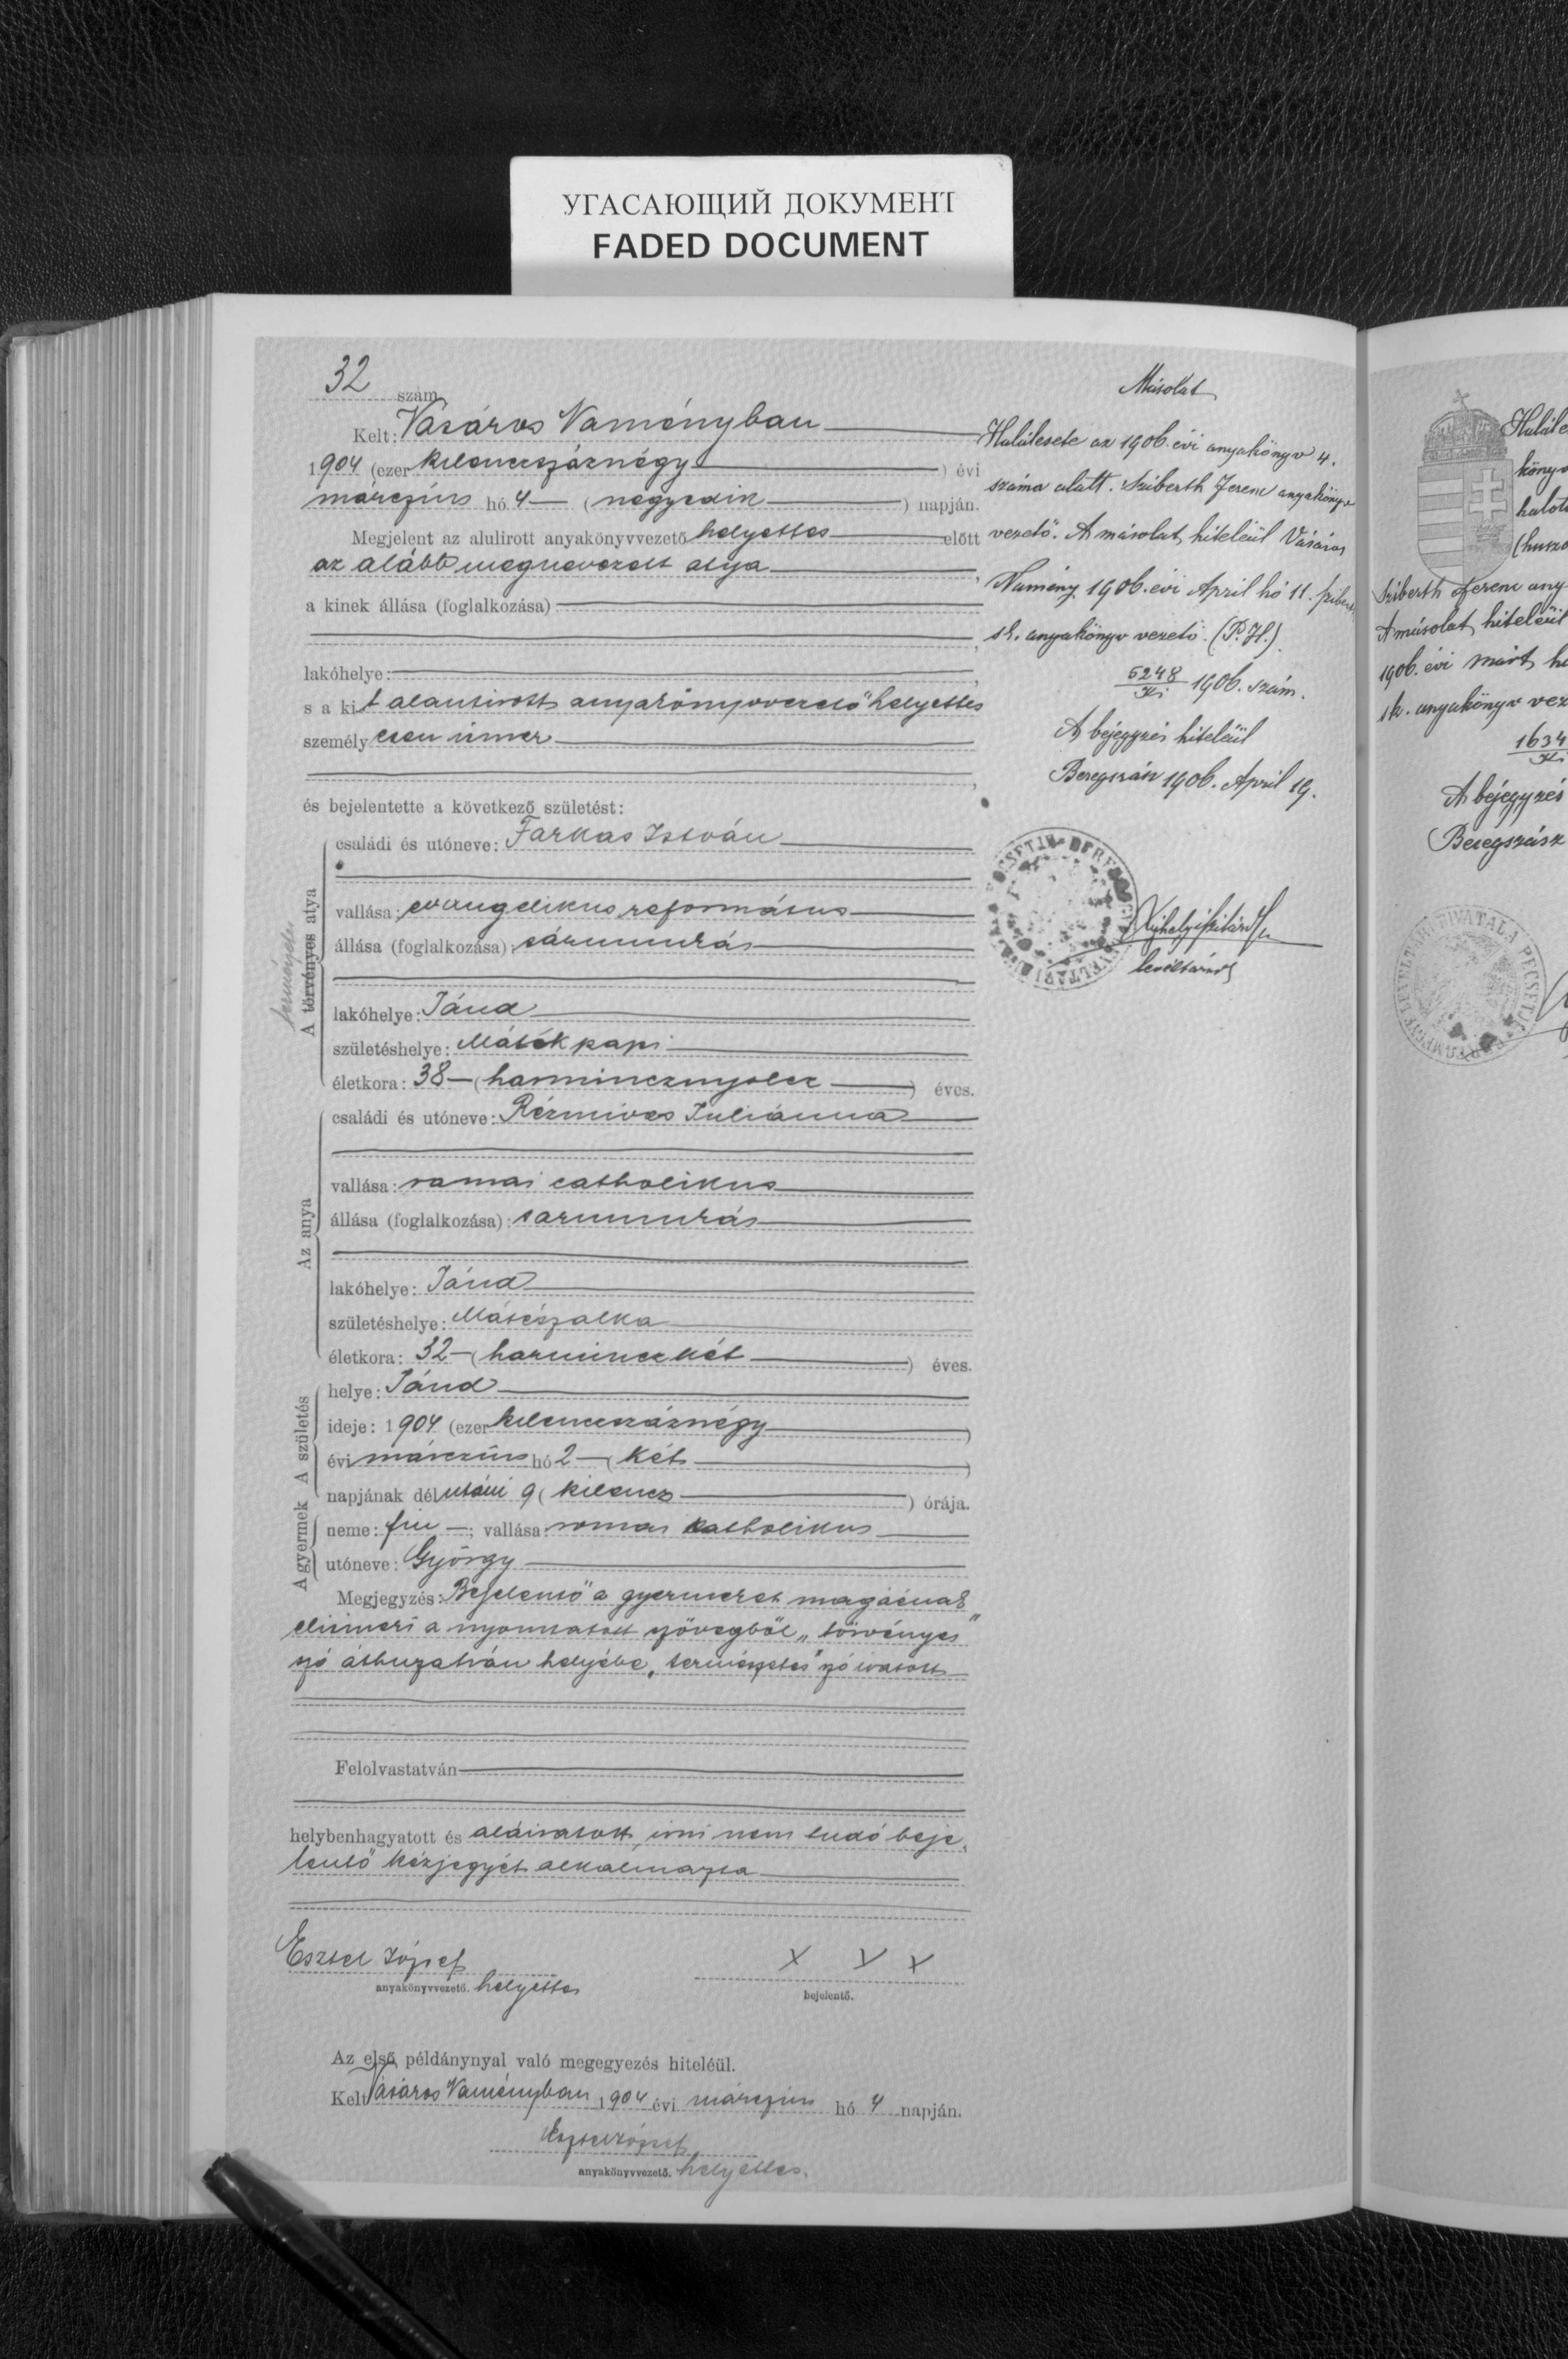 УГАСАЮЩИЙ ДОКУМЕНТ
FADED DOCUMENT
32 szám
Kelt: Vásáros Naményban
1904 (ezer kilenczszáznégy) évi
márczius hó 4 — (negyedik) napján.
Megjelent az alulirott anyakönyvvezető helyettes előtt
az alább megnevezett atya,
a kinek állása (foglalkozása)
lakóhelye:
s a kit alantirott anyakönyvvezető helyettes
személyesen ismer
és bejelentette a következő születést:
természetes
A törvényes atya
családi és utóneve: Farkas István
vallása: evangelikus református
állása (foglalkozása): sármunkás
lakóhelye: Jánd
születéshelye: Máték papi
életkora: 38 — (harmincznyolcz) éves.
Az anya
családi és utóneve: Rézmives Juliánna
vallása: romai catholikus
állása (foglalkozása): sarmunkás
lakóhelye: Jánd
születéshelye: Mátészalka
életkora: 32 — (harminczkét) éves.
A születés
helye: Jánd
ideje: 1904 (ezer kilenczszáznégy)
évi márczius hó 2 — (két)
napjának délutáni 9 (kilencz) órája.
A gyermek
neme: fiu —; vallása: romai katholikus
utóneve: György
Megjegyzés: Bejelentő a gyermeket magáénak
elismeri a nyomtatott szövegből „törvényes"
szó áthuzatván helyébe „természetes" szó iratott
Felolvastatván
helybenhagyatott és aláiratott, irni nem tudó beje,
lentő kézjegyét alkalmazta
Eszter József
anyakönyvvezető. helyettes
X X X
bejelentő.
Az első példánynyal való megegyezés hiteléül.
Kelt Vásáros Naményban 1904 évi márczius hó 4 napján.
Eszter József
anyakönyvvezető. helyettes.
Másolat
Halálesete az 1906. évi anyakönyv 4.
száma alatt. Sziberth Ferenc anyakönyv
vezető. A másolat hiteléül Vásáros
Namény 1906. évi April hó 11.
sk. anyakönyv vezető. (P. H.)
5248/Ki 1906. szám.
A béjegyzés hiteléül
Beregszász 1906. April 19.
levéltárnok
Halále
könyv
halott
(husza
Sziberth Ferenc any
A másolat hiteléül
1906. évi márt. h
sk. anyakönyv vez
1634/Ki
A béjegyzés
Beregszász